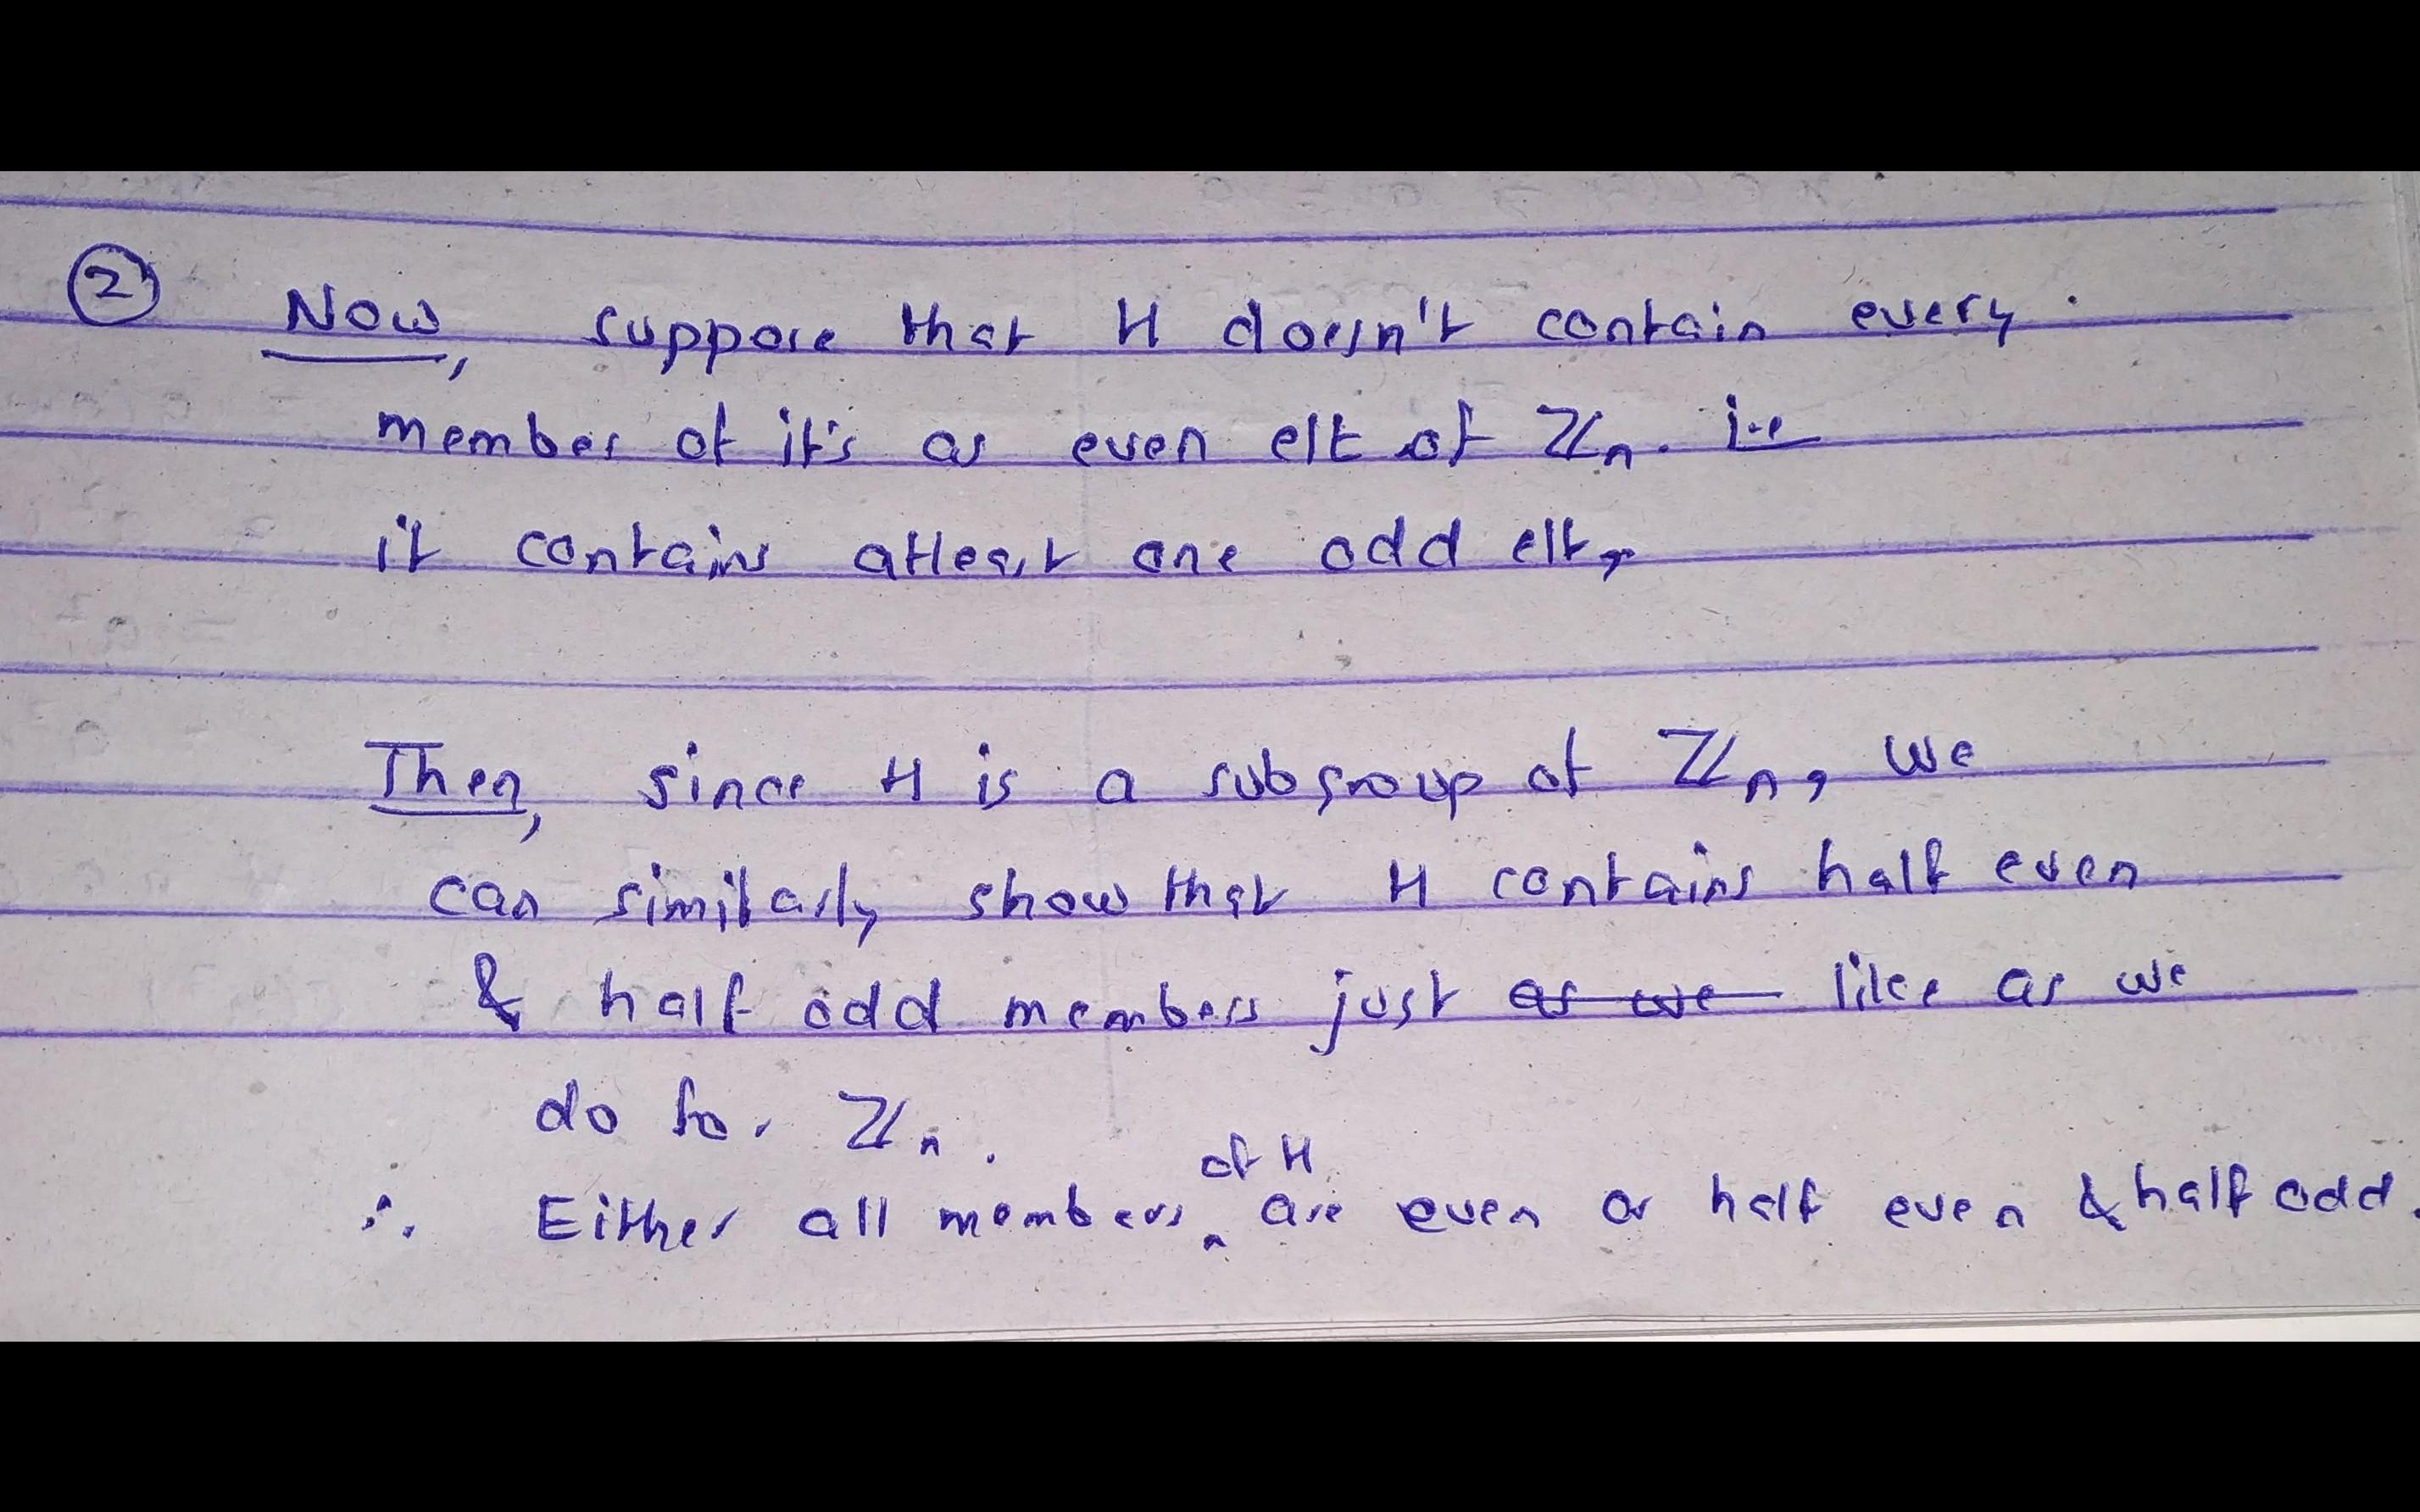 ② Now, suppose that H doesn't contain every
member of it's as even elt of ℤn. i.e
it contains atleast one odd elt,
Then, since H is a subgroup of ℤn, we
can similarly show that H contains half even
& half odd members just as we like as we
do for ℤn.
of H
∴ Either all members ^ are even or half even & half odd.